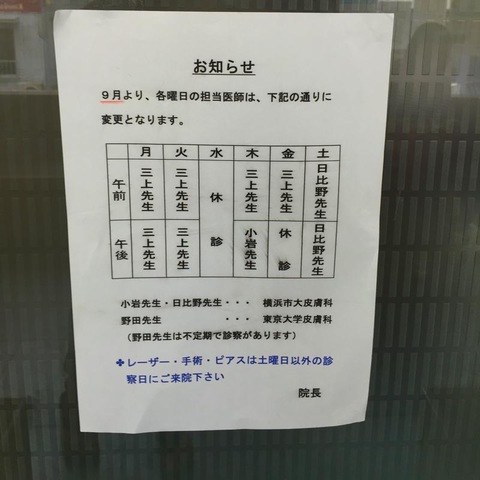 お知らせ
9月より、各曜日の担当医師は、下記の通りに
変更となります。
月 火 水 木 金 土
午前 三上先生 三上先生 休診 三上先生 三上先生 日比野先生
午後 三上先生 三上先生 小岩先生 休診 日比野先生
小岩先生・日比野先生・・・ 横浜市大皮膚科
野田先生 ・・・ 東京大学皮膚科
(野田先生は不定期で診察があります)
✤レーザー・手術・ピアスは土曜日以外の診
察日にご来院下さい
院長